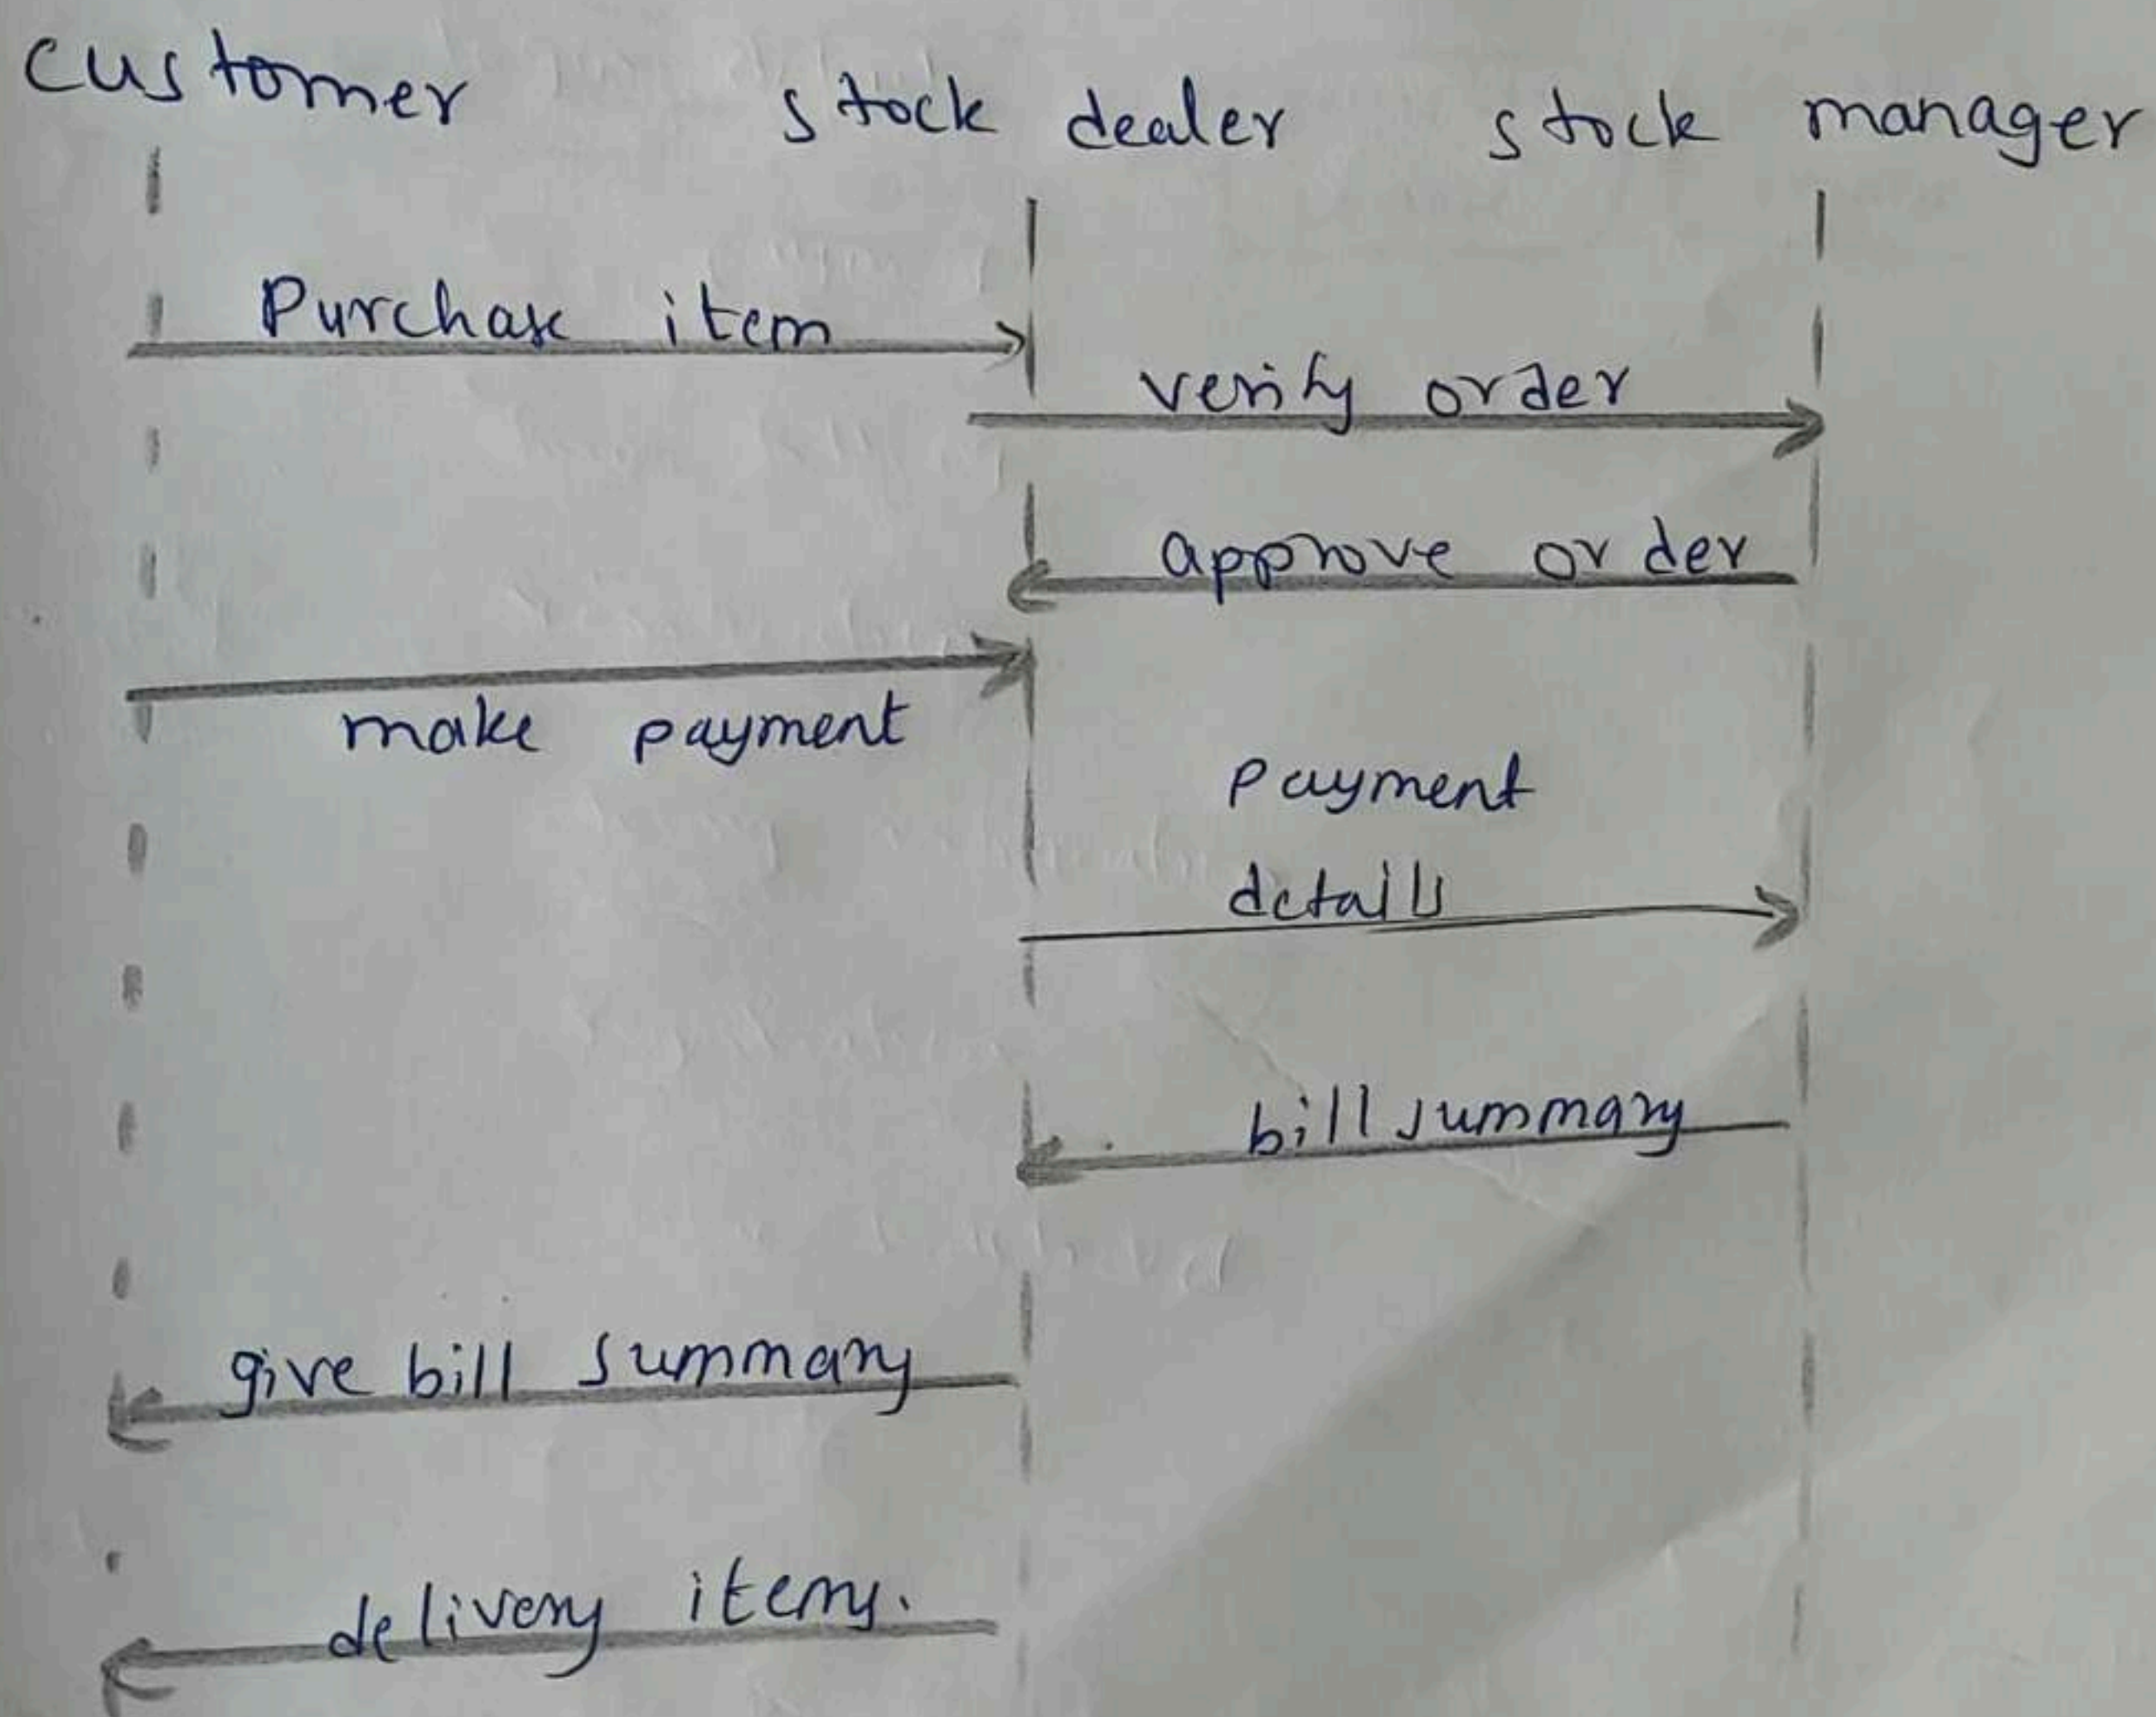 customer stock dealer stock manager
Purchase item
verify order
approve order
make payment
Payment
details
bill summary
give bill summary
delivery items.